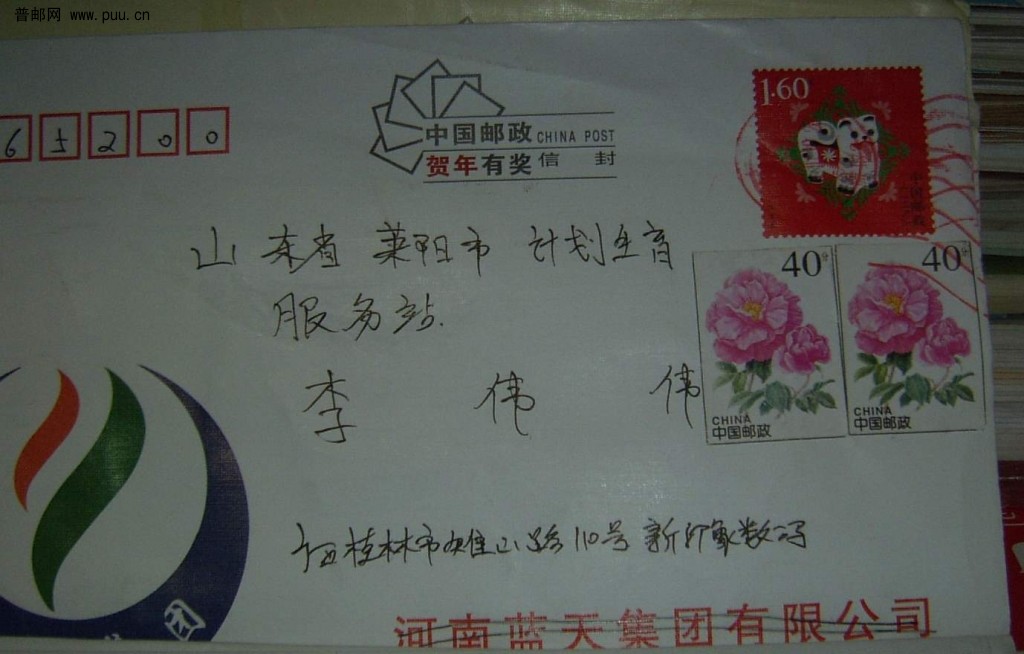 普邮网 www.puu.cn
65200
中国邮政 CHINA POST
贺年有奖信封
1.60
中国邮政
山东省 莱阳市 计划生育
服务站.
李 伟 伟
40分
CHINA
中国邮政
40分
CHINA
中国邮政
广西桂林市雉山路110号新印象数码
团
河南蓝天集团有限公司